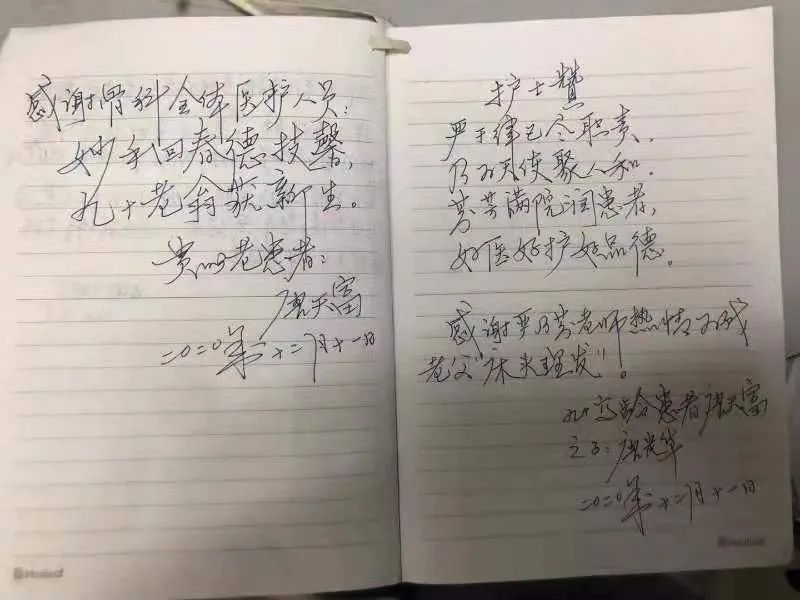 感谢骨科全体医护人员:
妙手回春德技馨,
九十老翁获新生。
贵院老患者:
唐天富
二〇二〇年十二月十一日
护士赞
严于律己尽职责,
乃为天使聚人和。
芬芳满院润患者,
好医好护好品德。
感谢严乃芬老师热情为我
老父"床头理发"。
九十高龄患者唐天富
之子:唐
二〇二〇年十二月十一日